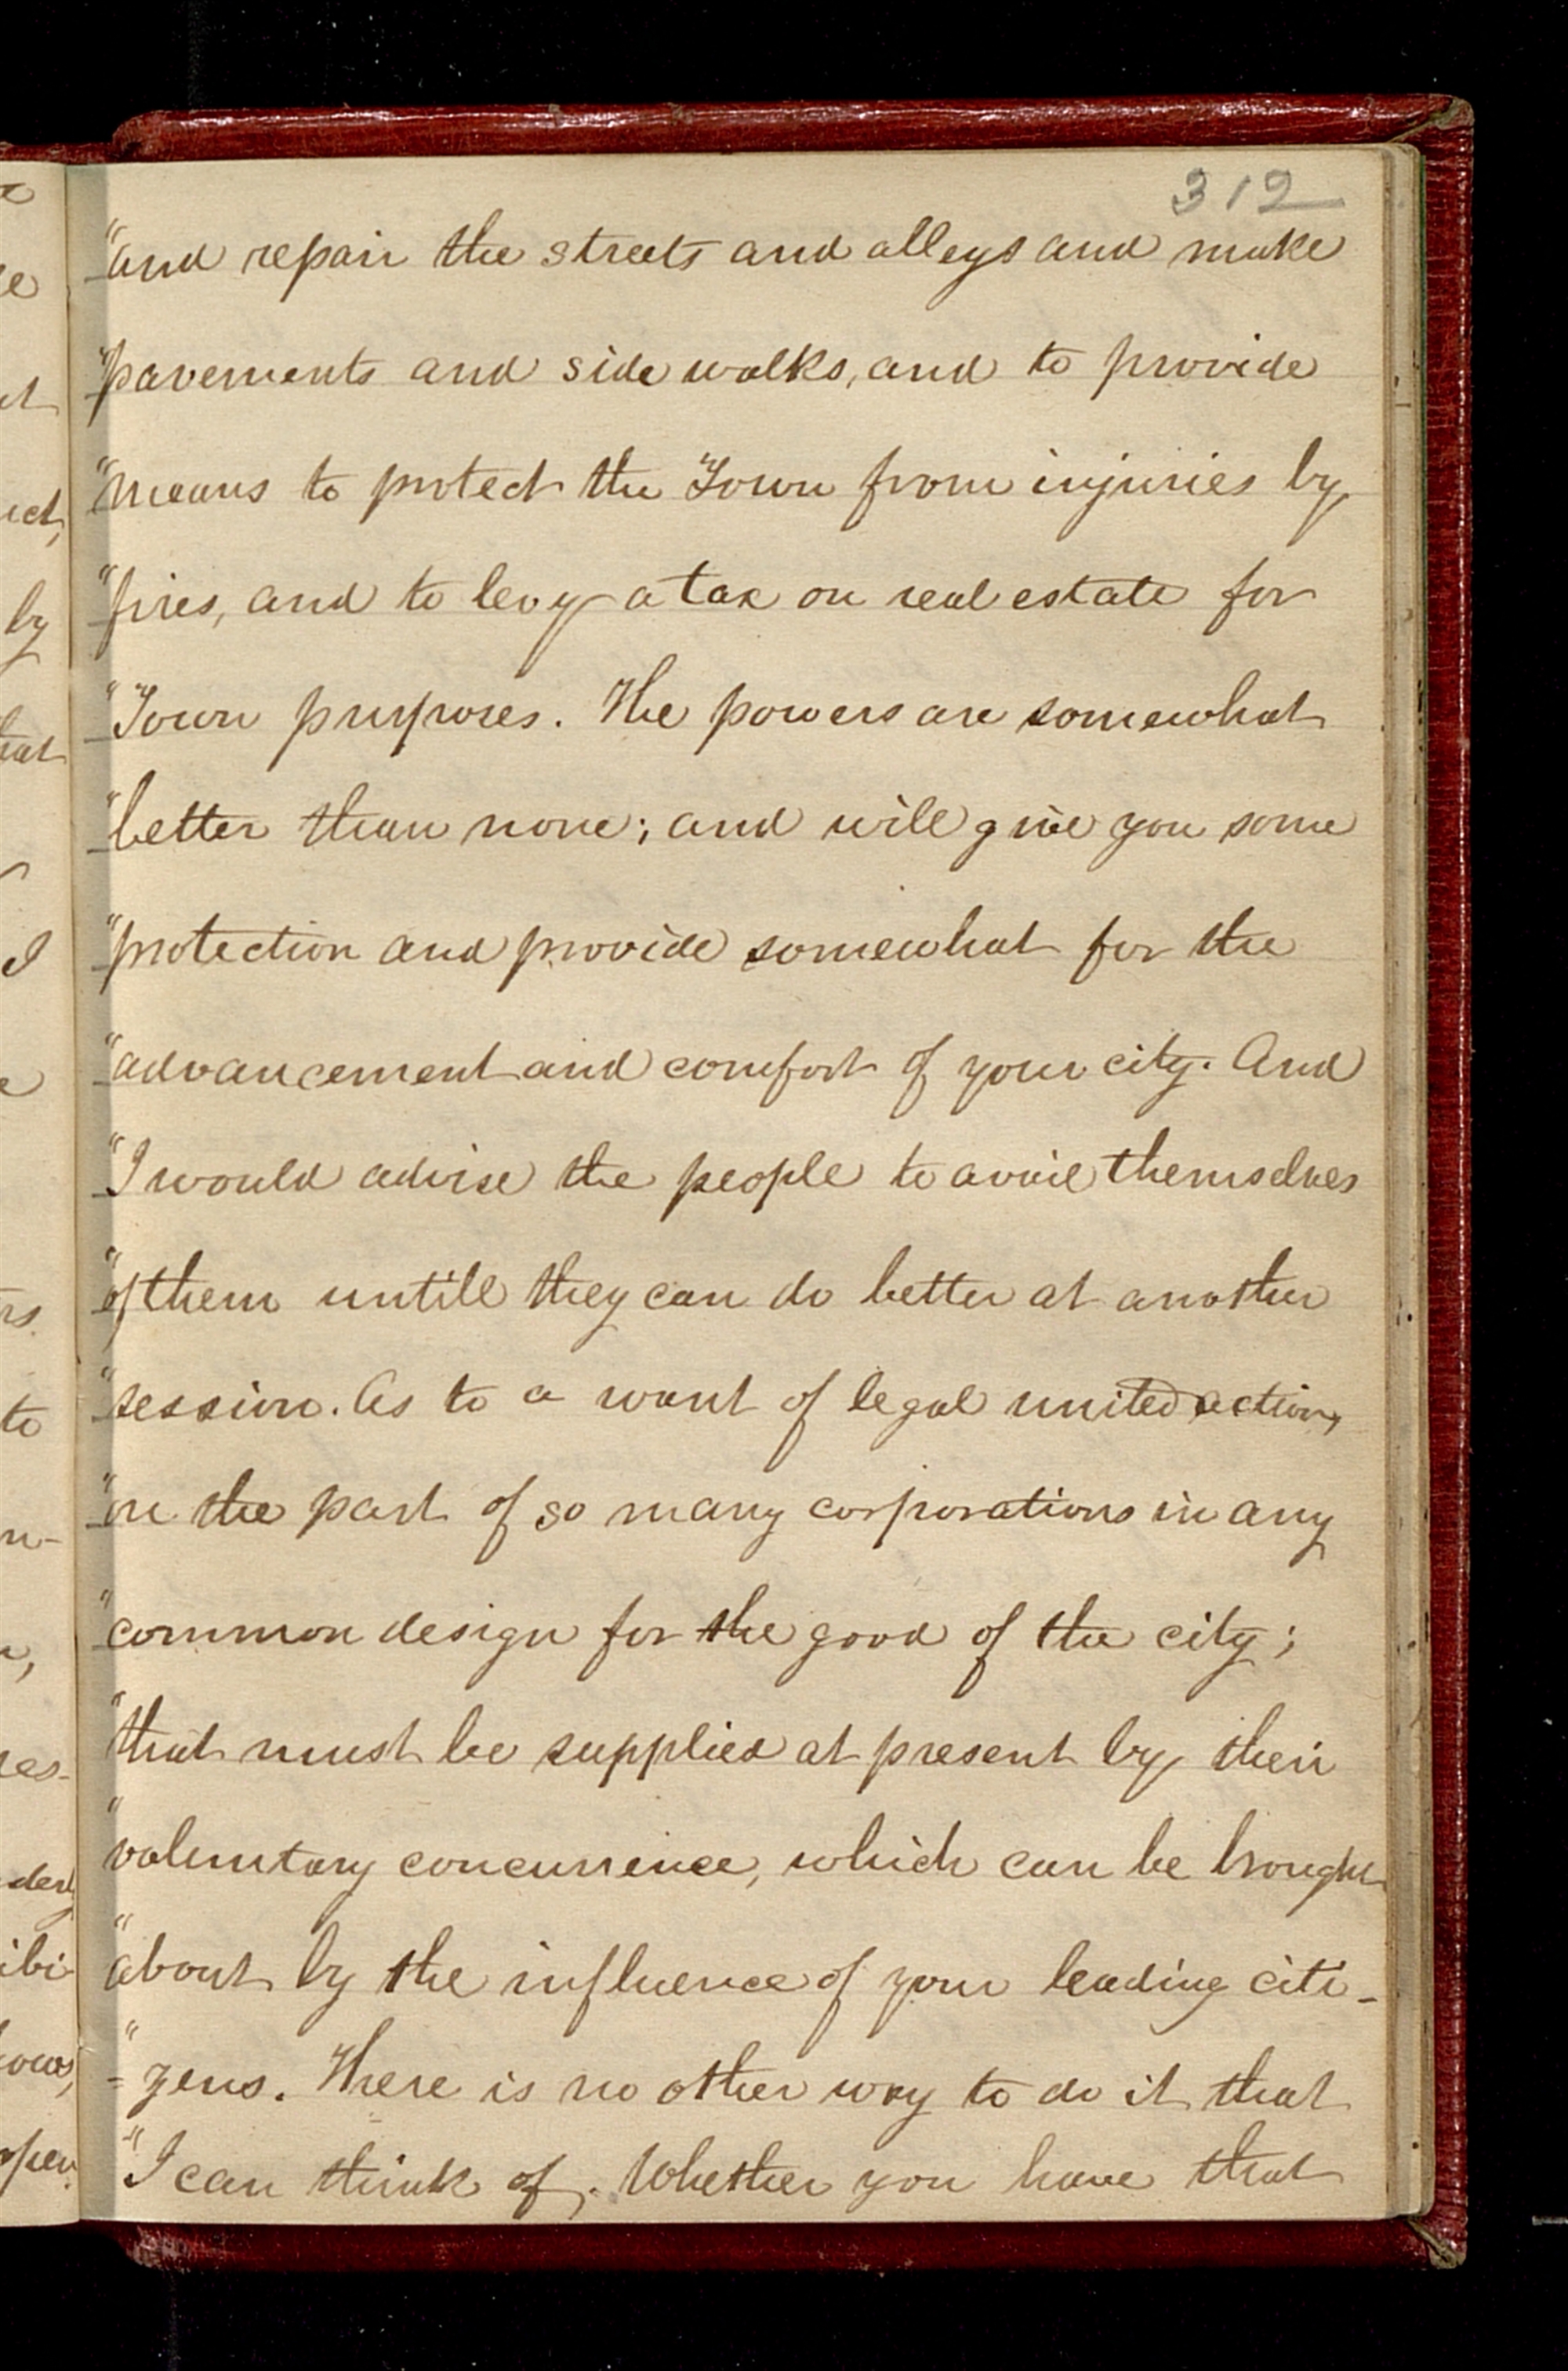 312
"and repair the streets and alleys and make
"pavements and side walks, and to provide
"means to protect the Town from injuries by
"fires, and to levy a tax on real estate for
"Town purposes. The powers are somewhat
"better than none; and will give you some
"protection and provide somewhat for the
"advancement and comfort of your city. And
"I would advise the people to avail themselves
"of them untill they can do better at another
"session. As to a want of legal united action,
"on the part of so many corporations in any
"common design for the good of the city;
"that must be supplied at present by their
"voluntary concurrence, which can be brought
"about by the influence of your leading citi-
"=zens. There is no other way to do it that
"I can think of. Whether you have that